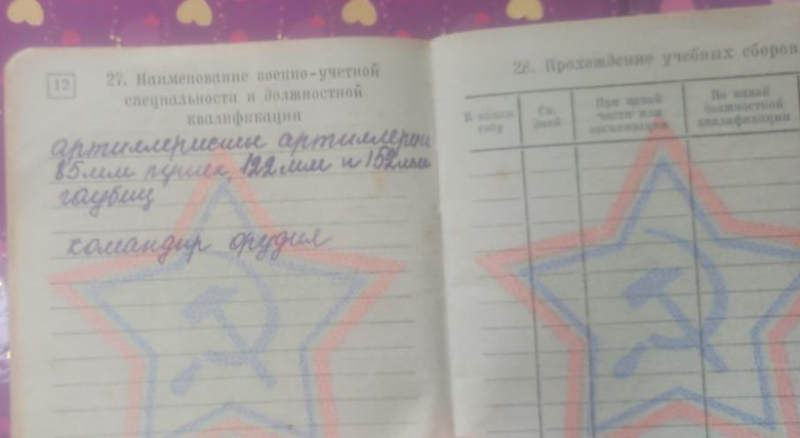 12
27. Наименование военно-учетной
специальности и должностной
квалификации
артиллеристы артиллерии
85мм пушек, 122мм и 152мм
гаубиц
командир орудия
28. Прохождение учебных сборов
В каком году
Ск. дней
При какой части или организации
По какой должностной квалификации